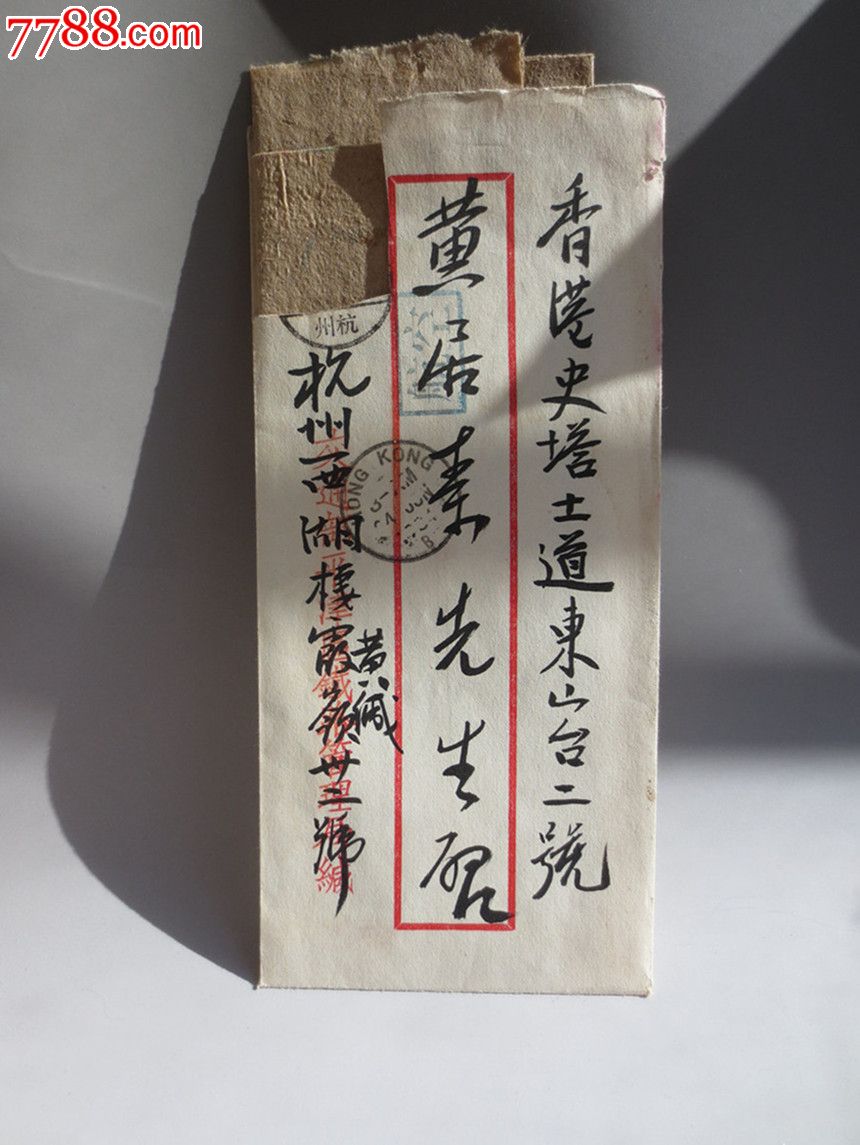 7788.com
香港史塔士道東山台二號
黄居素先生啓
杭州西湖棲霞嶺卅二號
黄緘
杭州
HONG KONG